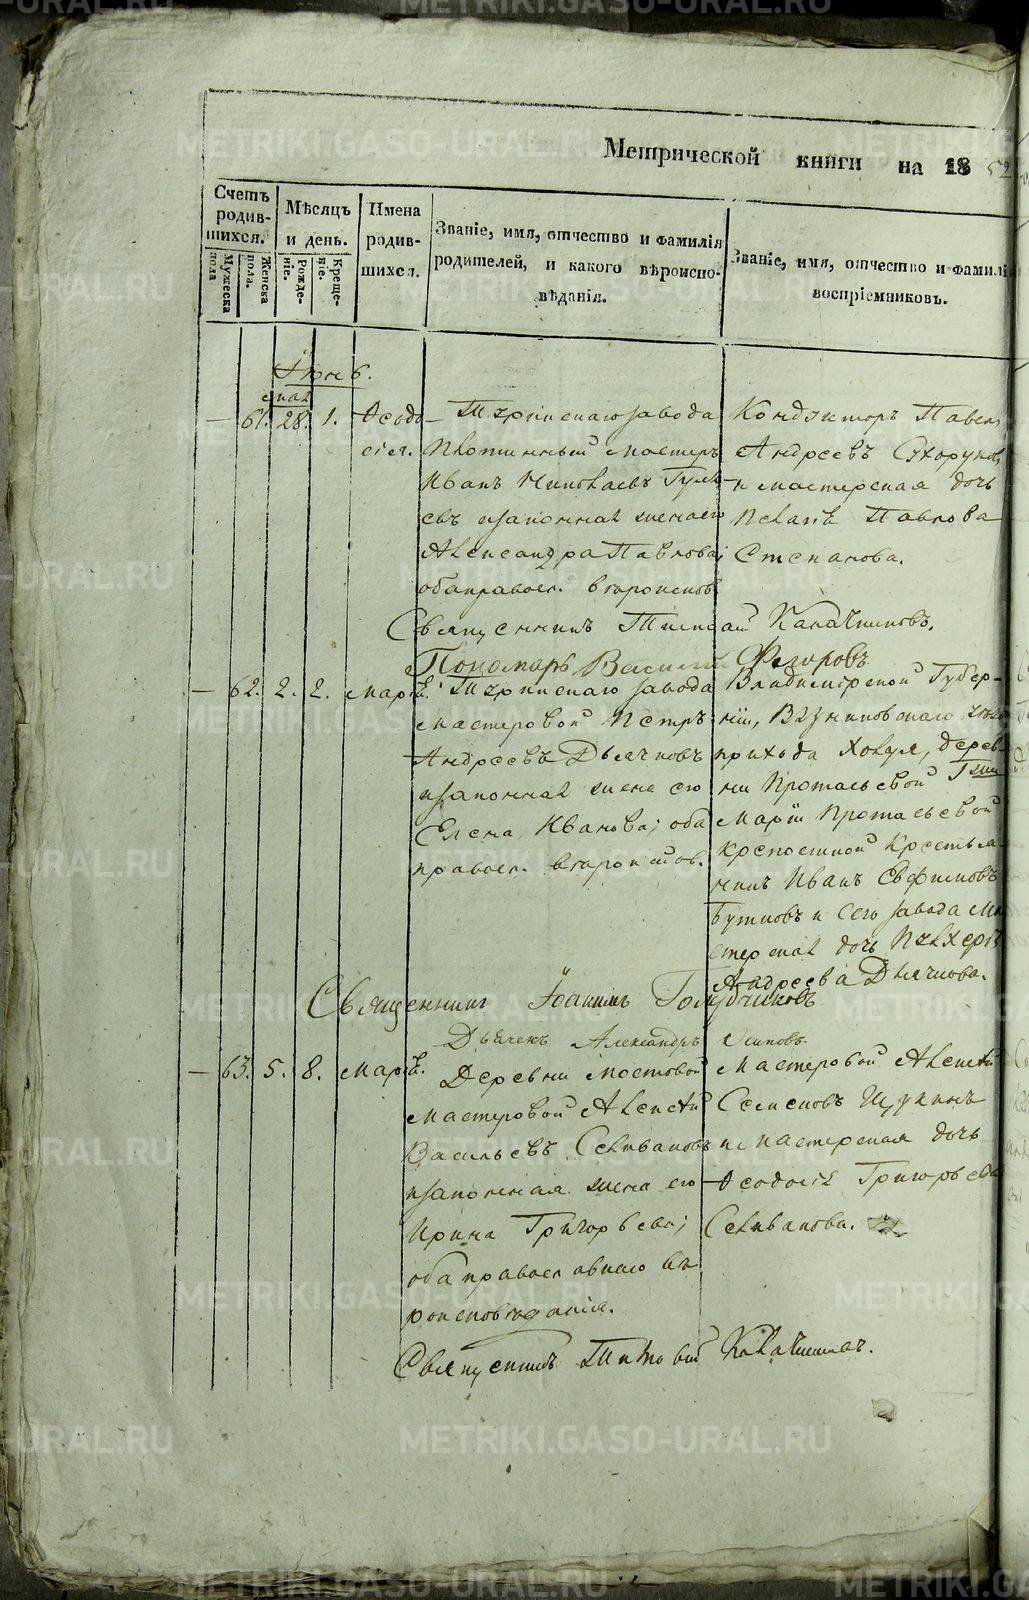 Метрической книги на 1852
Счетъ родив-шихся.
Мужеска пола
Женска пола.
Мѣсяцъ и день.
Рожде-ніе.
Креще-ніе.
Имена родив-шихся.
Званіе, имя, отчество и фамилія
родителей, и какого вѣроиспо-
вѣданія.
Званіе, имя, отчество и фамилія
воспріемниковъ.
Іюнь.
мая
— 61. 28. 1. Ѳеодо-
сія.
завода
мастеръ
Иванъ Николаевъ
евъ и законная жена его
Александра Павлова;
оба правосл. вѣроисповѣд.
Кондукторъ Павелъ
Андреевъ Сухоруковъ
и мастерская дочь
Пелагія Павлова
Степанова.
Священникъ Тимофей Калачниковъ.
Пономарь Василій Федоровъ
— 62. 2. 2. Марія.
завода
мастеровой Петръ
Андреевъ Дьячковъ
и законная жена его
Елена Иванова; оба
правосл. вѣроисповѣд.
Владимірской Губер-
ніи, Вязниковскаго уѣзда
прихода Холуя, дерев-
ни Протасьевой
Маріи Протасьевой
крепостной Крестья-
нинъ Иванъ Ефимовъ
и сего завода ма-
стерская дочь Пульхерія
Андреева Дьячкова.
Священникъ Іоакимъ Голубчиковъ
Дьячекъ Александръ Осиповъ
— 63. 5. 8. Марія.
Деревни Мостовой
мастеровой Алексѣй
Васильевъ Селивановъ
и законная жена его
Ирина Григорьева;
оба православнаго вѣ-
роисповѣданія.
мастеровой Алексѣй
Семеновъ
и мастерская дочь
Ѳеодосія Григорьева
Селиванова.
Священникъ Тимофей Калачниковъ.
METRIKI.GASO-URAL.RU